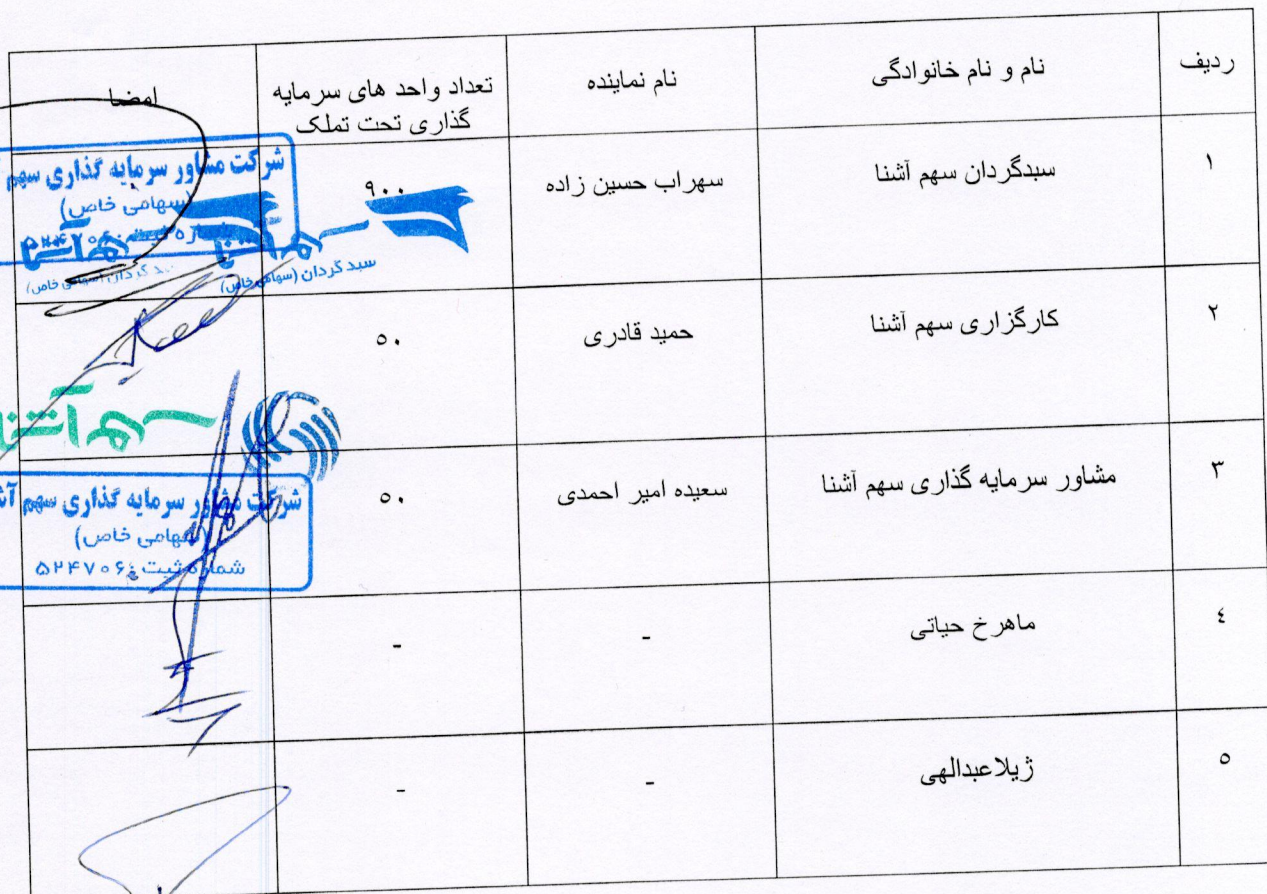 ردیف
نام و نام خانوادگی
نام نماینده
تعداد واحد های سرمایه
گذاری تحت تملک
امضا
۱
سبدگردان سهم آشنا
سهراب حسین زاده
۹۰۰
شرکت مشاور سرمایه گذاری سهم
(سهامی خاص)
سبد گردان (سهامی خاص)
سبد گردان (سهامی خاص)
۲
کارگزاری سهم آشنا
حمید قادری
۵۰
۳
مشاور سرمایه گذاری سهم آشنا
سعیده امیر احمدی
۵۰
شرکت مشاور سرمایه گذاری سهم
(سهامی خاص)
شماره ثبت: ۵۲۴۷۰۶
٤
ماهرخ حیاتی
-
-
۵
ژیلاعبدالهی
-
-